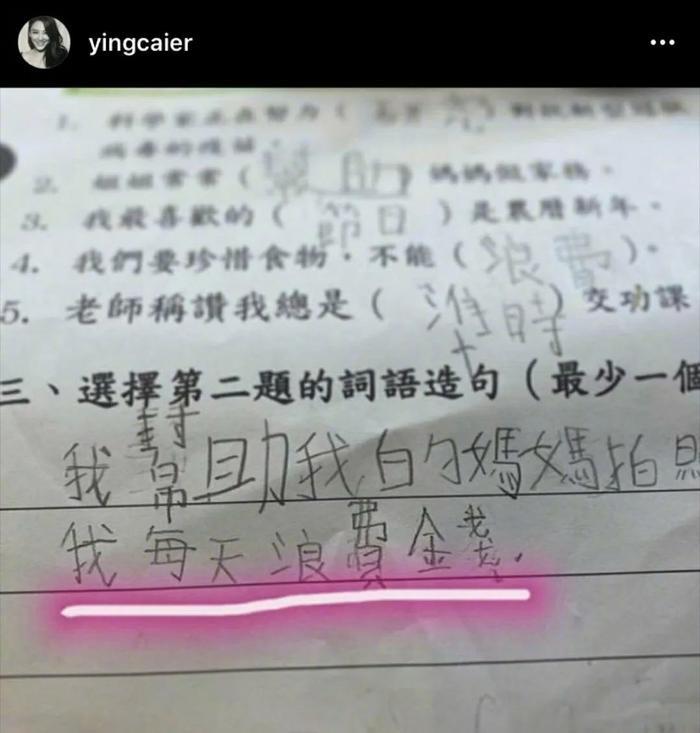 yingcaier
1. 科學家正在努力（
病毒的疫苗。
2. 姐姐常常（幫助）媽媽做家務。
3. 我最喜歡的（節日）是農曆新年。
4. 我們要珍惜食物，不能（浪費）。
5. 老師稱讚我總是（準時）交功課
三、選擇第二題的詞語造句（最少一個
我幫助我白勺媽媽拍照
我每天浪費金錢.